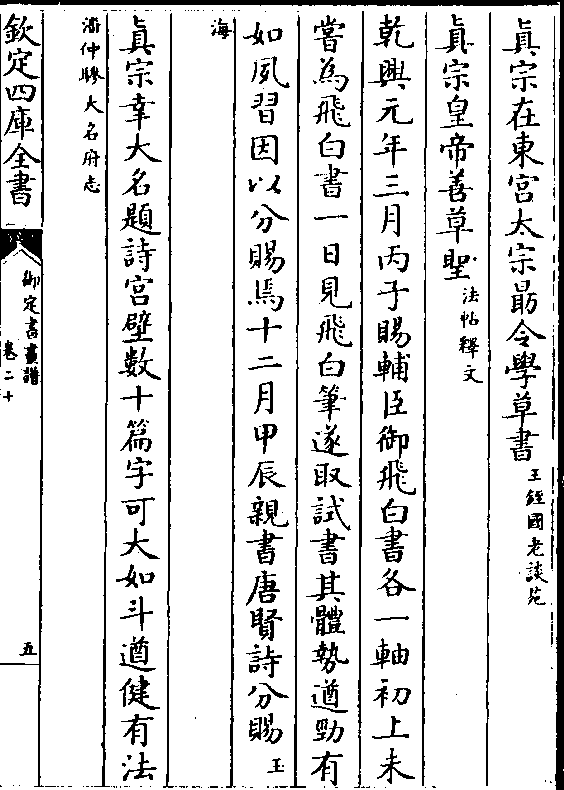 眞宗在東宮太宗勗令學草書王銍國老談苑
眞宗皇帝善草聖法帖釋文
乾興元年三月丙子賜輔臣御飛白書各一軸初上未
嘗為飛白書一日見飛白筆遂取試書其體勢遒勁有
如夙習因以分賜焉十二月甲辰親書唐賢詩分賜玉
海
眞宗幸大名題詩宮壁數十篇字可大如斗遒健有法
潘仲驂大名府志
欽定四庫全書
御定書畫譜
卷二十
五